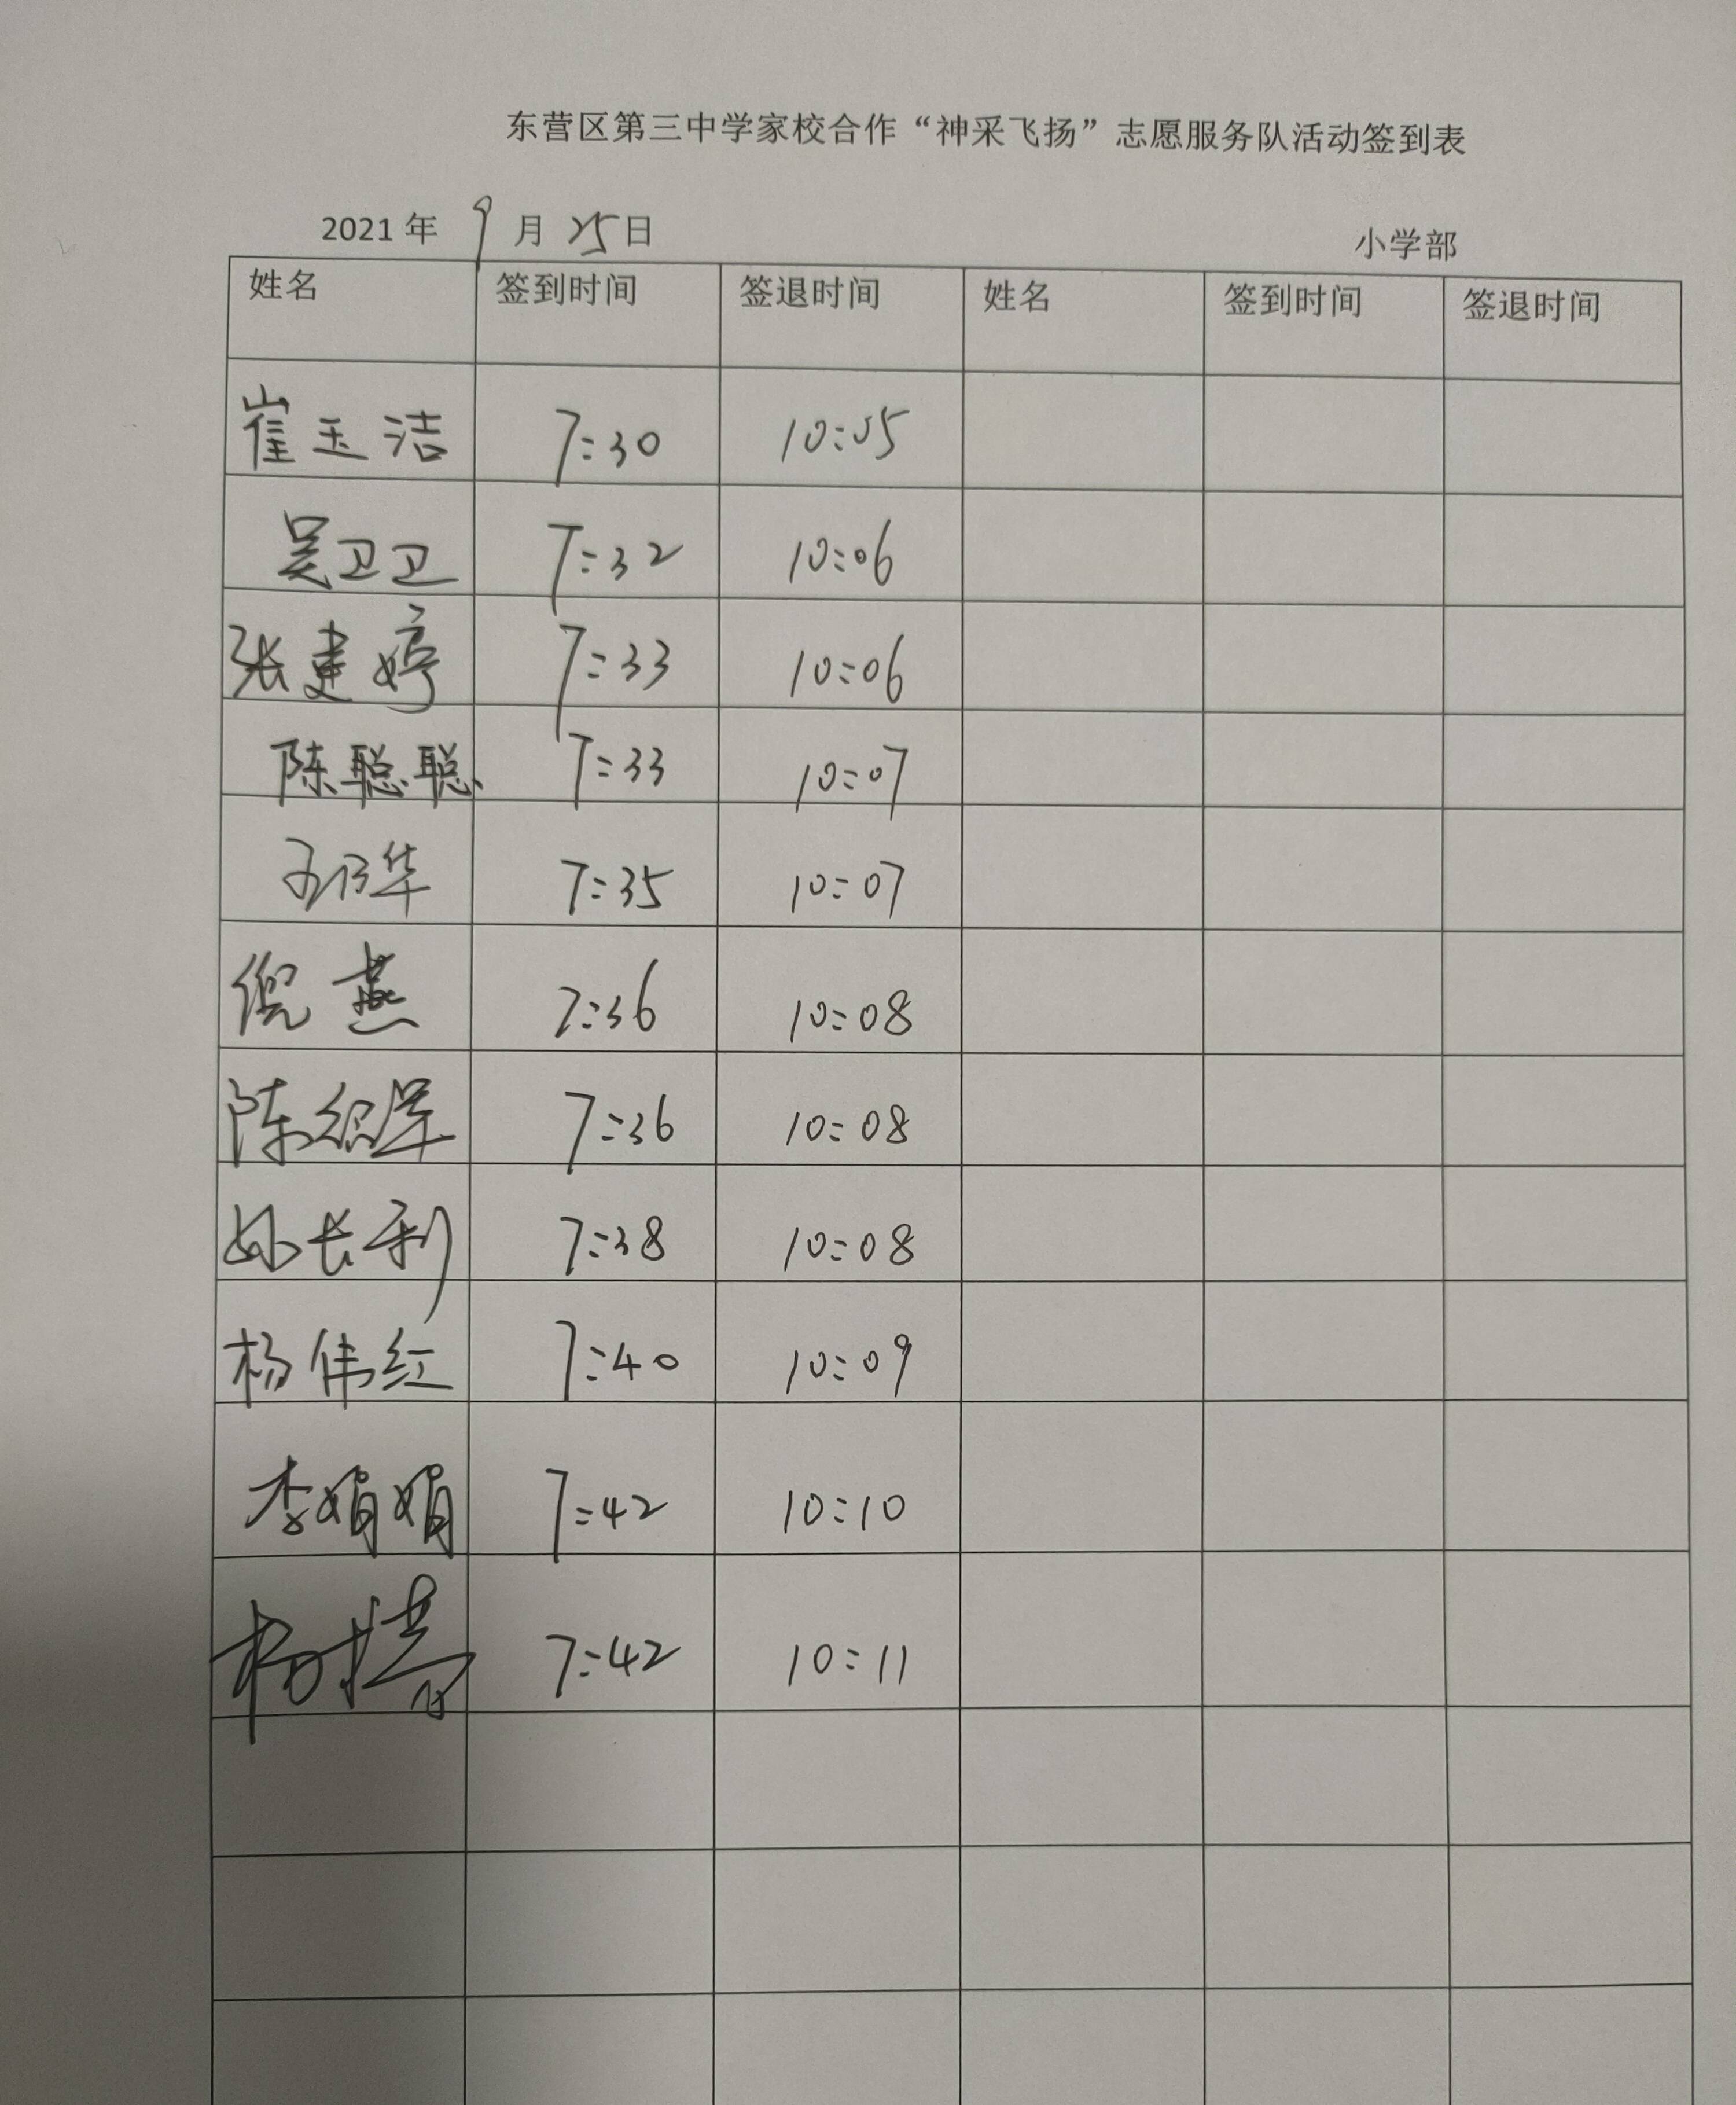 东营区第三中学家校合作“神采飞扬”志愿服务队活动签到表
2021 年 9 月 25 日 小学部
姓名 签到时间 签退时间 姓名 签到时间 签退时间
崔玉洁 7:30 10:05
吴卫卫 7:32 10:06
张建婷 7:33 10:06
陈聪聪 7:33 10:07
7:35 10:07
倪燕 7:36 10:08
陈绍军 7:36 10:08
孙长利 7:38 10:08
杨伟红 7:40 10:09
李娟娟 7:42 10:10
杨 7:42 10:11